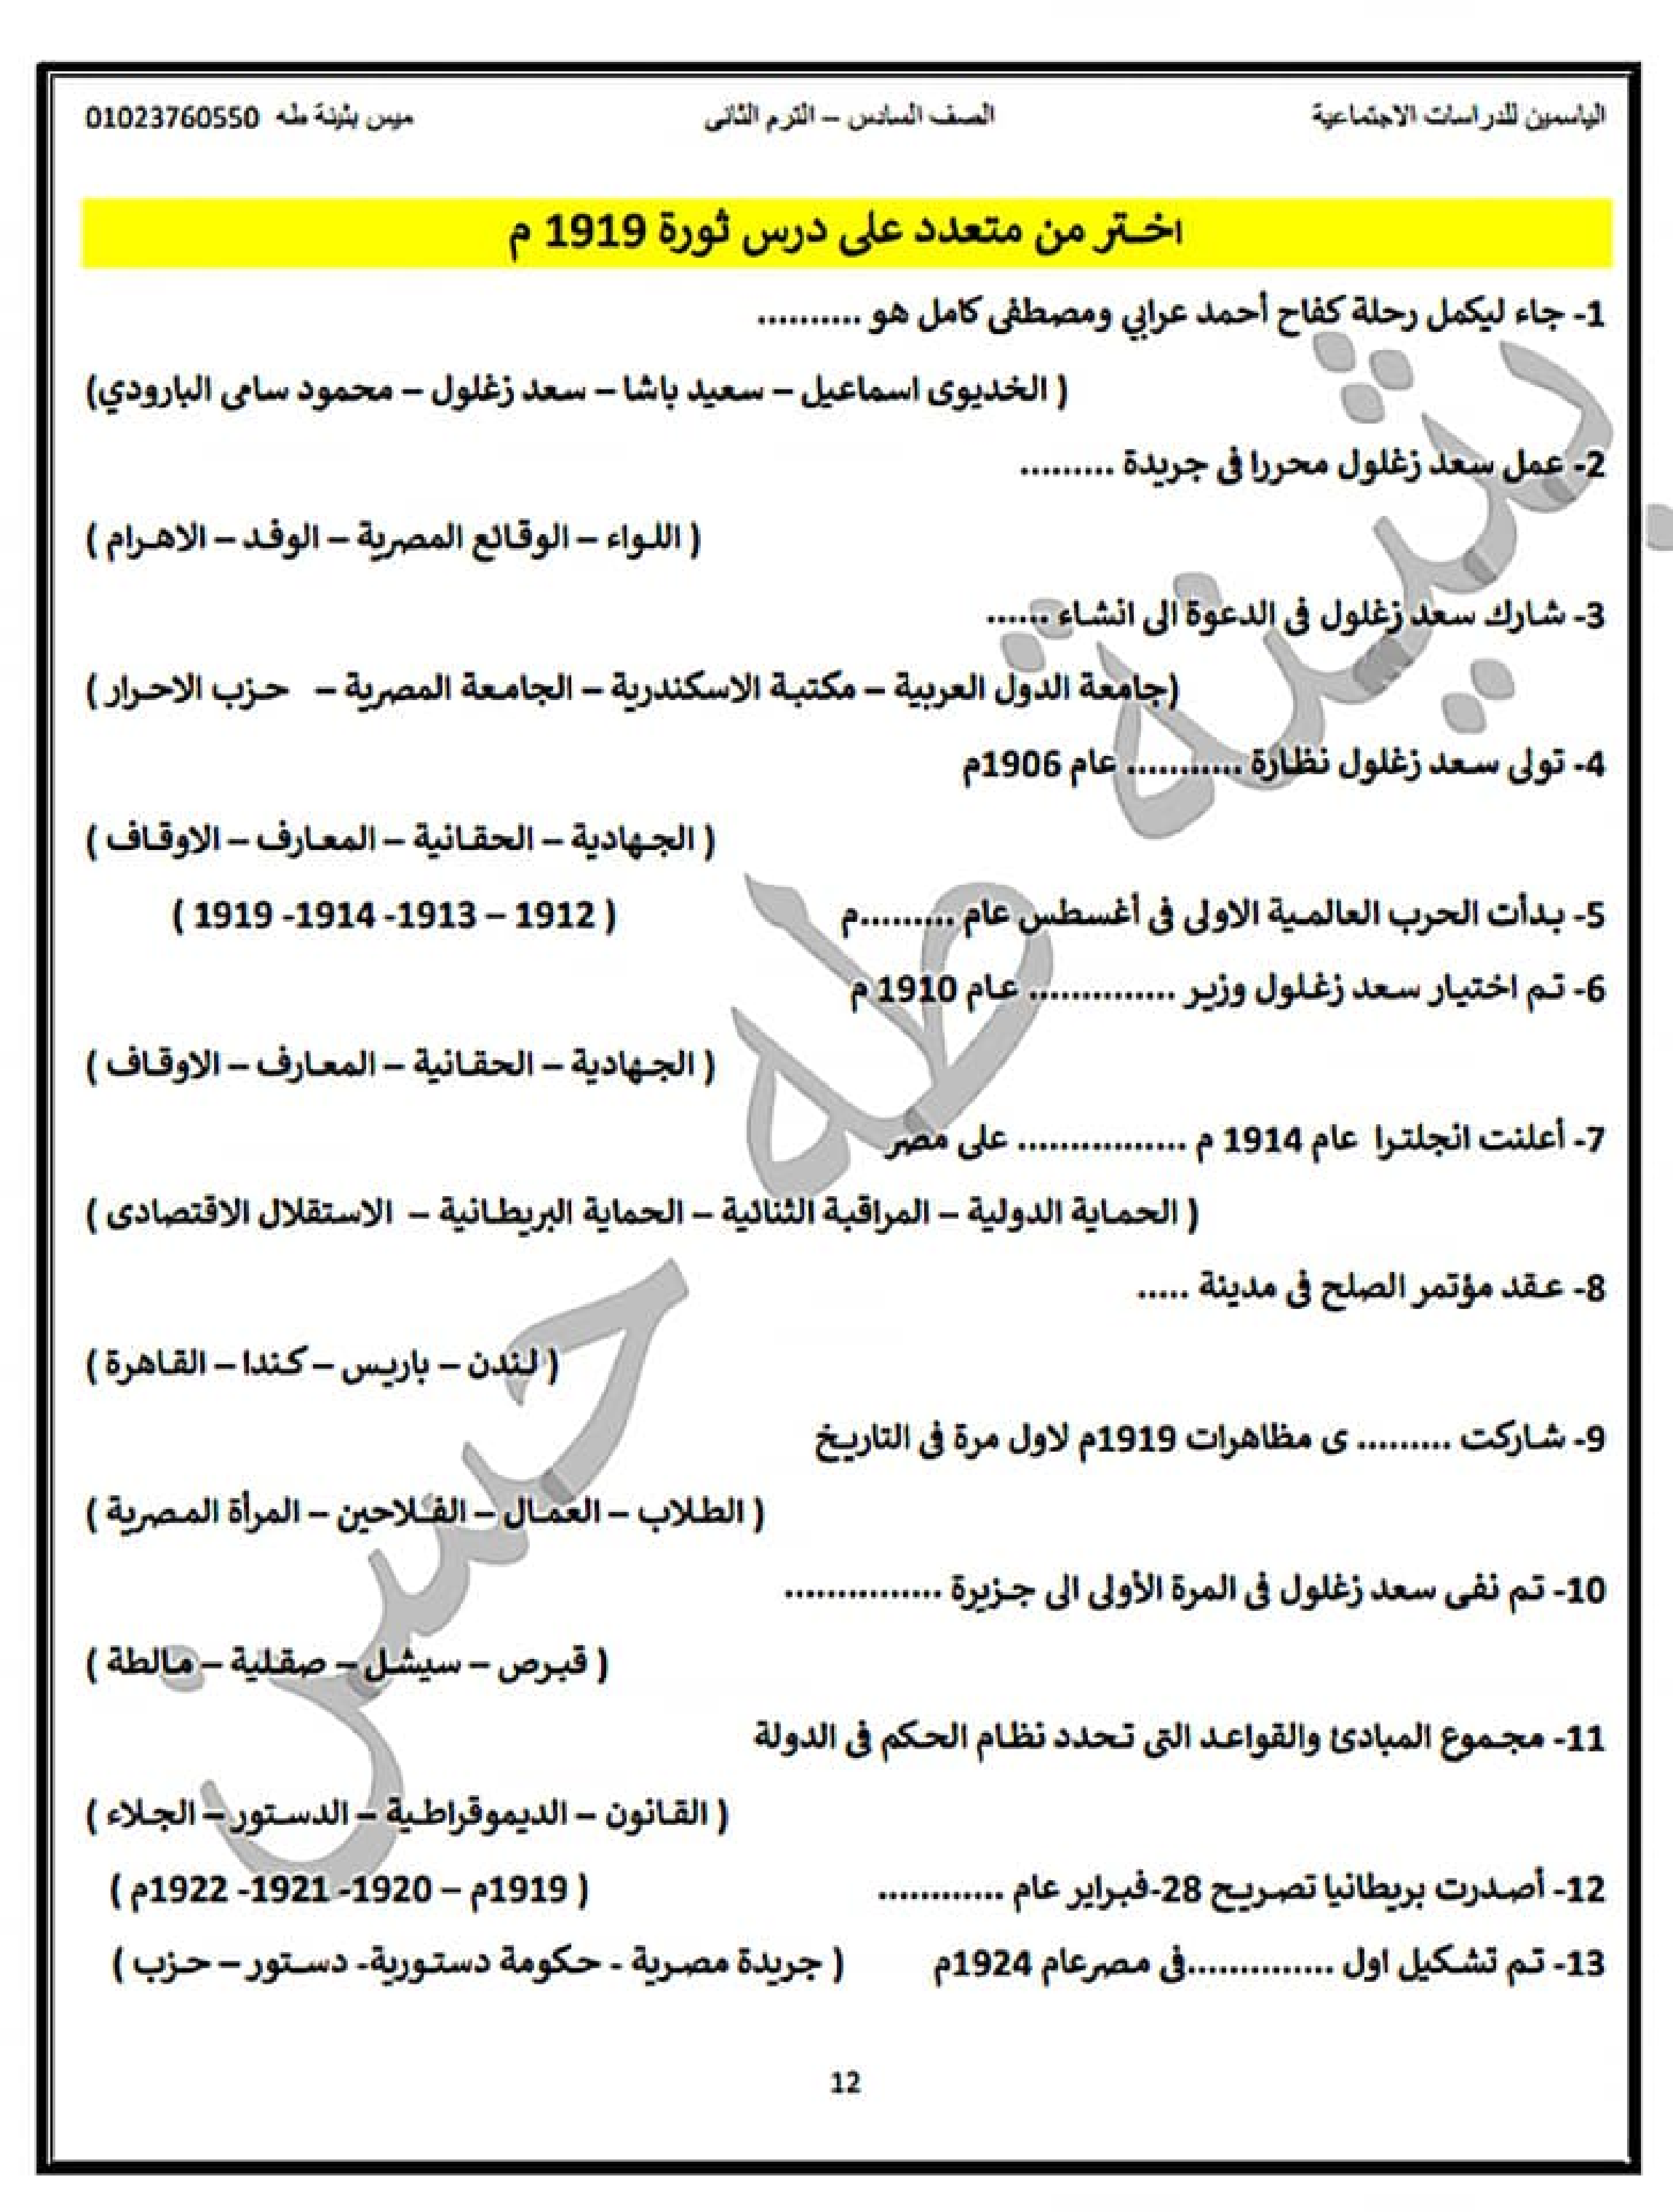 الياسمين للدراسات الاجتماعية الصف السادس – الترم الثانى ميس بثينة طه 01023760550
اختر من متعدد على درس ثورة 1919 م
1- جاء ليكمل رحلة كفاح أحمد عرابي ومصطفى كامل هو ..........
( الخديوى اسماعيل – سعيد باشا – سعد زغلول – محمود سامى البارودي)
2- عمل سعد زغلول محررا فى جريدة .........
( اللواء – الوقائع المصرية – الوفد – الاهرام )
3- شارك سعد زغلول فى الدعوة الى انشاء ......
(جامعة الدول العربية – مكتبة الاسكندرية – الجامعة المصرية – حزب الاحرار )
4- تولى سعد زغلول نظارة ........... عام 1906م
( الجهادية – الحقانية – المعارف – الاوقاف )
5- بدأت الحرب العالمية الاولى فى أغسطس عام .........م ( 1912 – 1913- 1914- 1919 )
6- تم اختيار سعد زغلول وزير .............. عام 1910 م
( الجهادية – الحقانية – المعارف – الاوقاف )
7- أعلنت انجلترا عام 1914 م ................ على مصر
( الحماية الدولية – المراقبة الثنائية – الحماية البريطانية – الاستقلال الاقتصادى )
8- عقد مؤتمر الصلح فى مدينة .....
( لندن – باريس – كندا – القاهرة )
9- شاركت ......... ى مظاهرات 1919م لاول مرة فى التاريخ
( الطلاب – العمال – الفلاحين – المرأة المصرية )
10- تم نفى سعد زغلول فى المرة الأولى الى جزيرة ...............
( قبرص – سيشل – صقلية – مالطة )
11- مجموع المبادئ والقواعد التى تحدد نظام الحكم فى الدولة
( القانون – الديموقراطية – الدستور – الجلاء )
12- أصدرت بريطانيا تصريح 28-فبراير عام ............ ( 1919م – 1920- 1921- 1922م )
13- تم تشكيل اول ..............فى مصرعام 1924م ( جريدة مصرية - حكومة دستورية- دستور – حزب )
12
بثينة طه حسن